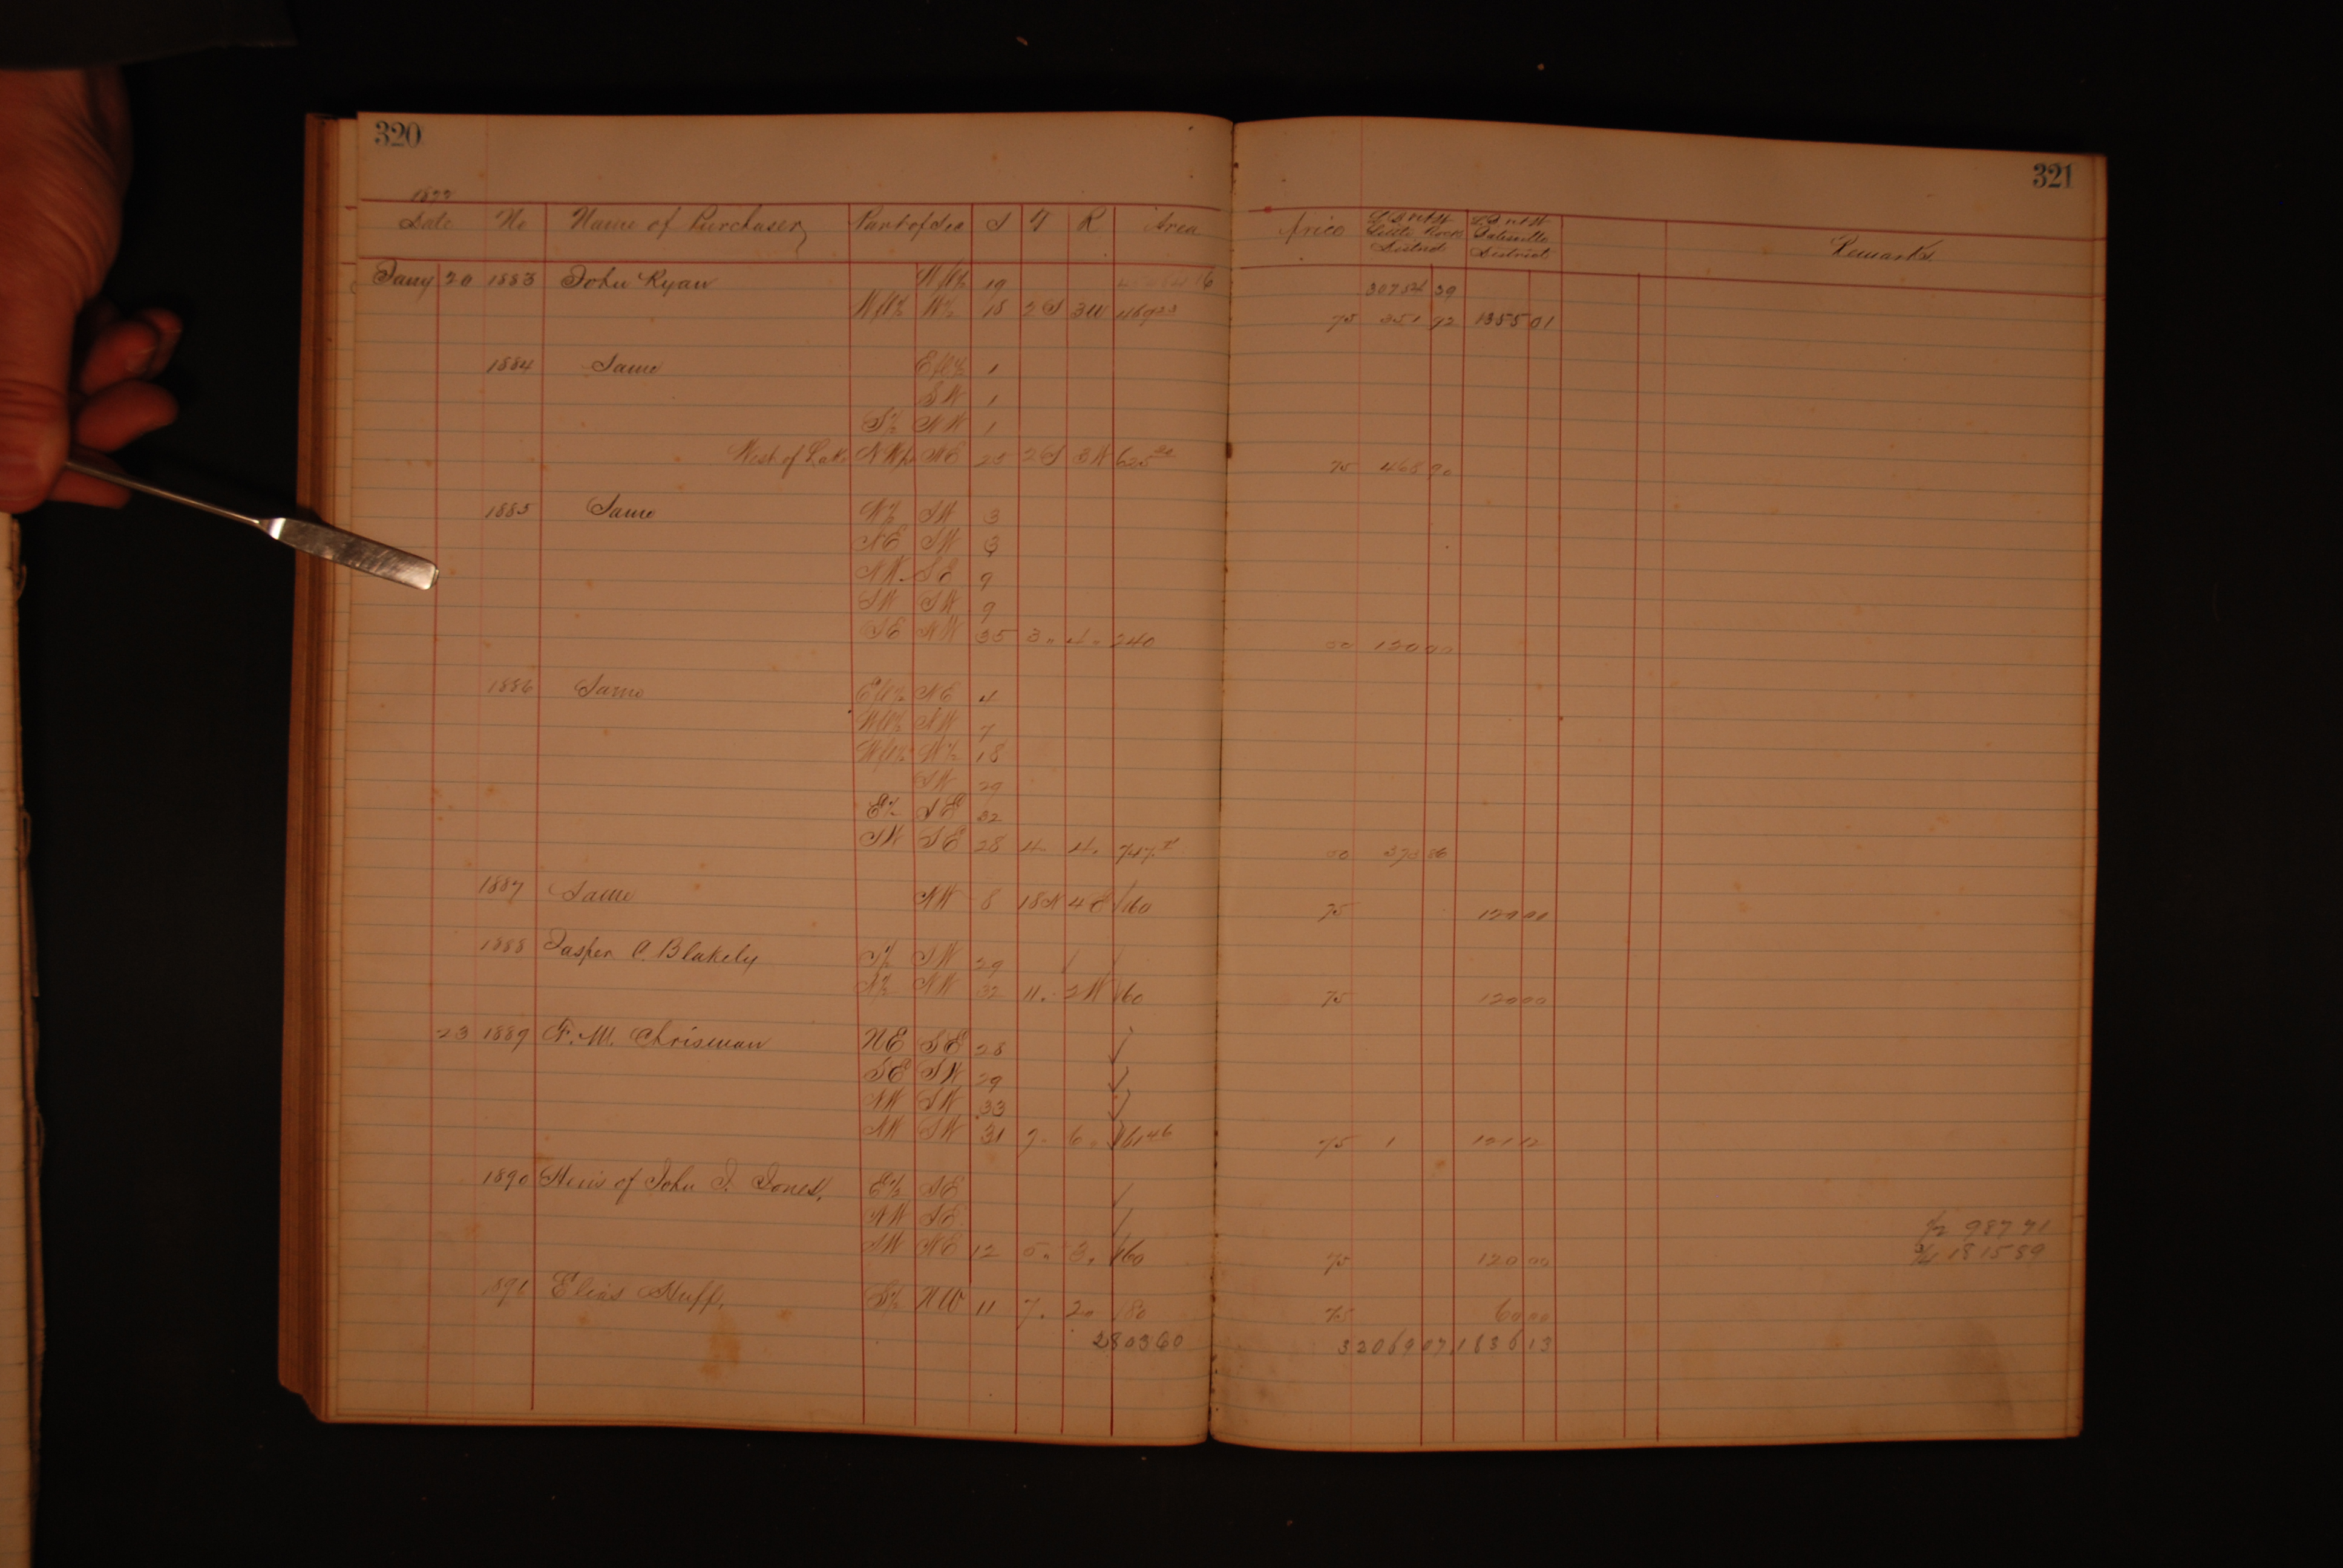 320
321
Date No Name of Purchaser Part of Sec S T R Area Price District District Remarks
Jany 20 1883 John Ryan Wfl½ 19 30754 39
Wfl½ W½ 18 2S 3W 469 23 75 351 92 1355 01
1884 Same Efl½ 1
SW 1
S½ NW 1
West of Lake NWfr NE 25 2S 3W 625 20 75 468 90
1885 Same W½ SW 3
NE SW 3
NW SE 9
SW SW 9
SE NW 35 3 " 4 " 240 50 120 00
1886 Same Efl½ NE 4
Wfl½ NW 7
Wfl½ W½ 18
SW 29
E½ SE 32
SW SE 28 4 " 4 " 747 50 373 86
1887 Same NW 8 18N 4E 160 75 120 00
1888 Jasper C. Blakely S½ SW 29
N½ NW 32 11 " 2W 160 75 120 00
23 1889 F. M. Chrisman NE SE 28
SE SW 29
NW SW 33
NW SW 31 9 " 6 " 161 46 75 121 12
1890 Heirs of John J. Jones, E½ SE
NW SE
SW NE 12 5 " 3 " 160 75 120 00
1891 Elias Huff, S½ NW 11 7 " 2 " 80 75 60 00
½ 987 71
¾ 1815 89
2803 60 32069 07 1836 13